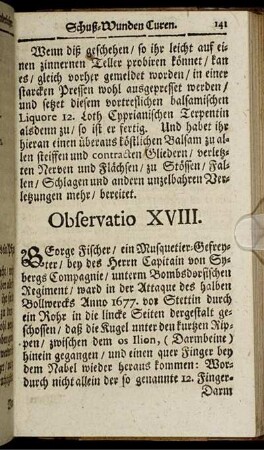 Schuß-Wunden Curen. 141
Wenn diß geschehen/ so ihr leicht auf ei-
nen zinnernen Teller probiren könnet/ kan
es/ gleich vorher gemeldet worden/ in einer
starcken Pressen wohl ausgepresset werden/
und setzet diesem vortreflichen balsamischen
Liquore 12. Loth Cyprianischen Terpentin
alsdenn zu/ so ist er fertig. Und habet ihr
hieran einen überaus köstlichen Balsam zu al-
len steiffen und contracten Gliedern/ verletz-
ten Nerven und Flächsen/ zu Stössen/ Fal-
len/ Schlagen und andern unzelbahren Ver-
letzungen mehr/ bereitet.
Observatio XVIII.
GEorge Fischer/ ein Musquetier-Gefrey-
ter/ bey des Herrn Capitain von Sy-
bergs Compagnie/ unterm Bombsdorfischen
Regiment/ ward in der Attaque des halben
Bollwercks Anno 1677. vor Stettin durch
ein Rohr in die lincke Seiten dergestalt ge-
schossen/ daß die Kugel unter den kurtzen Rip-
pen/ zwischen dem os Ilion, (Darmbeine)
hinein gegangen/ und einen quer Finger bey
dem Nabel wieder heraus kommen: Wor-
durch nicht allein der so genannte 12. Finger-
Darm